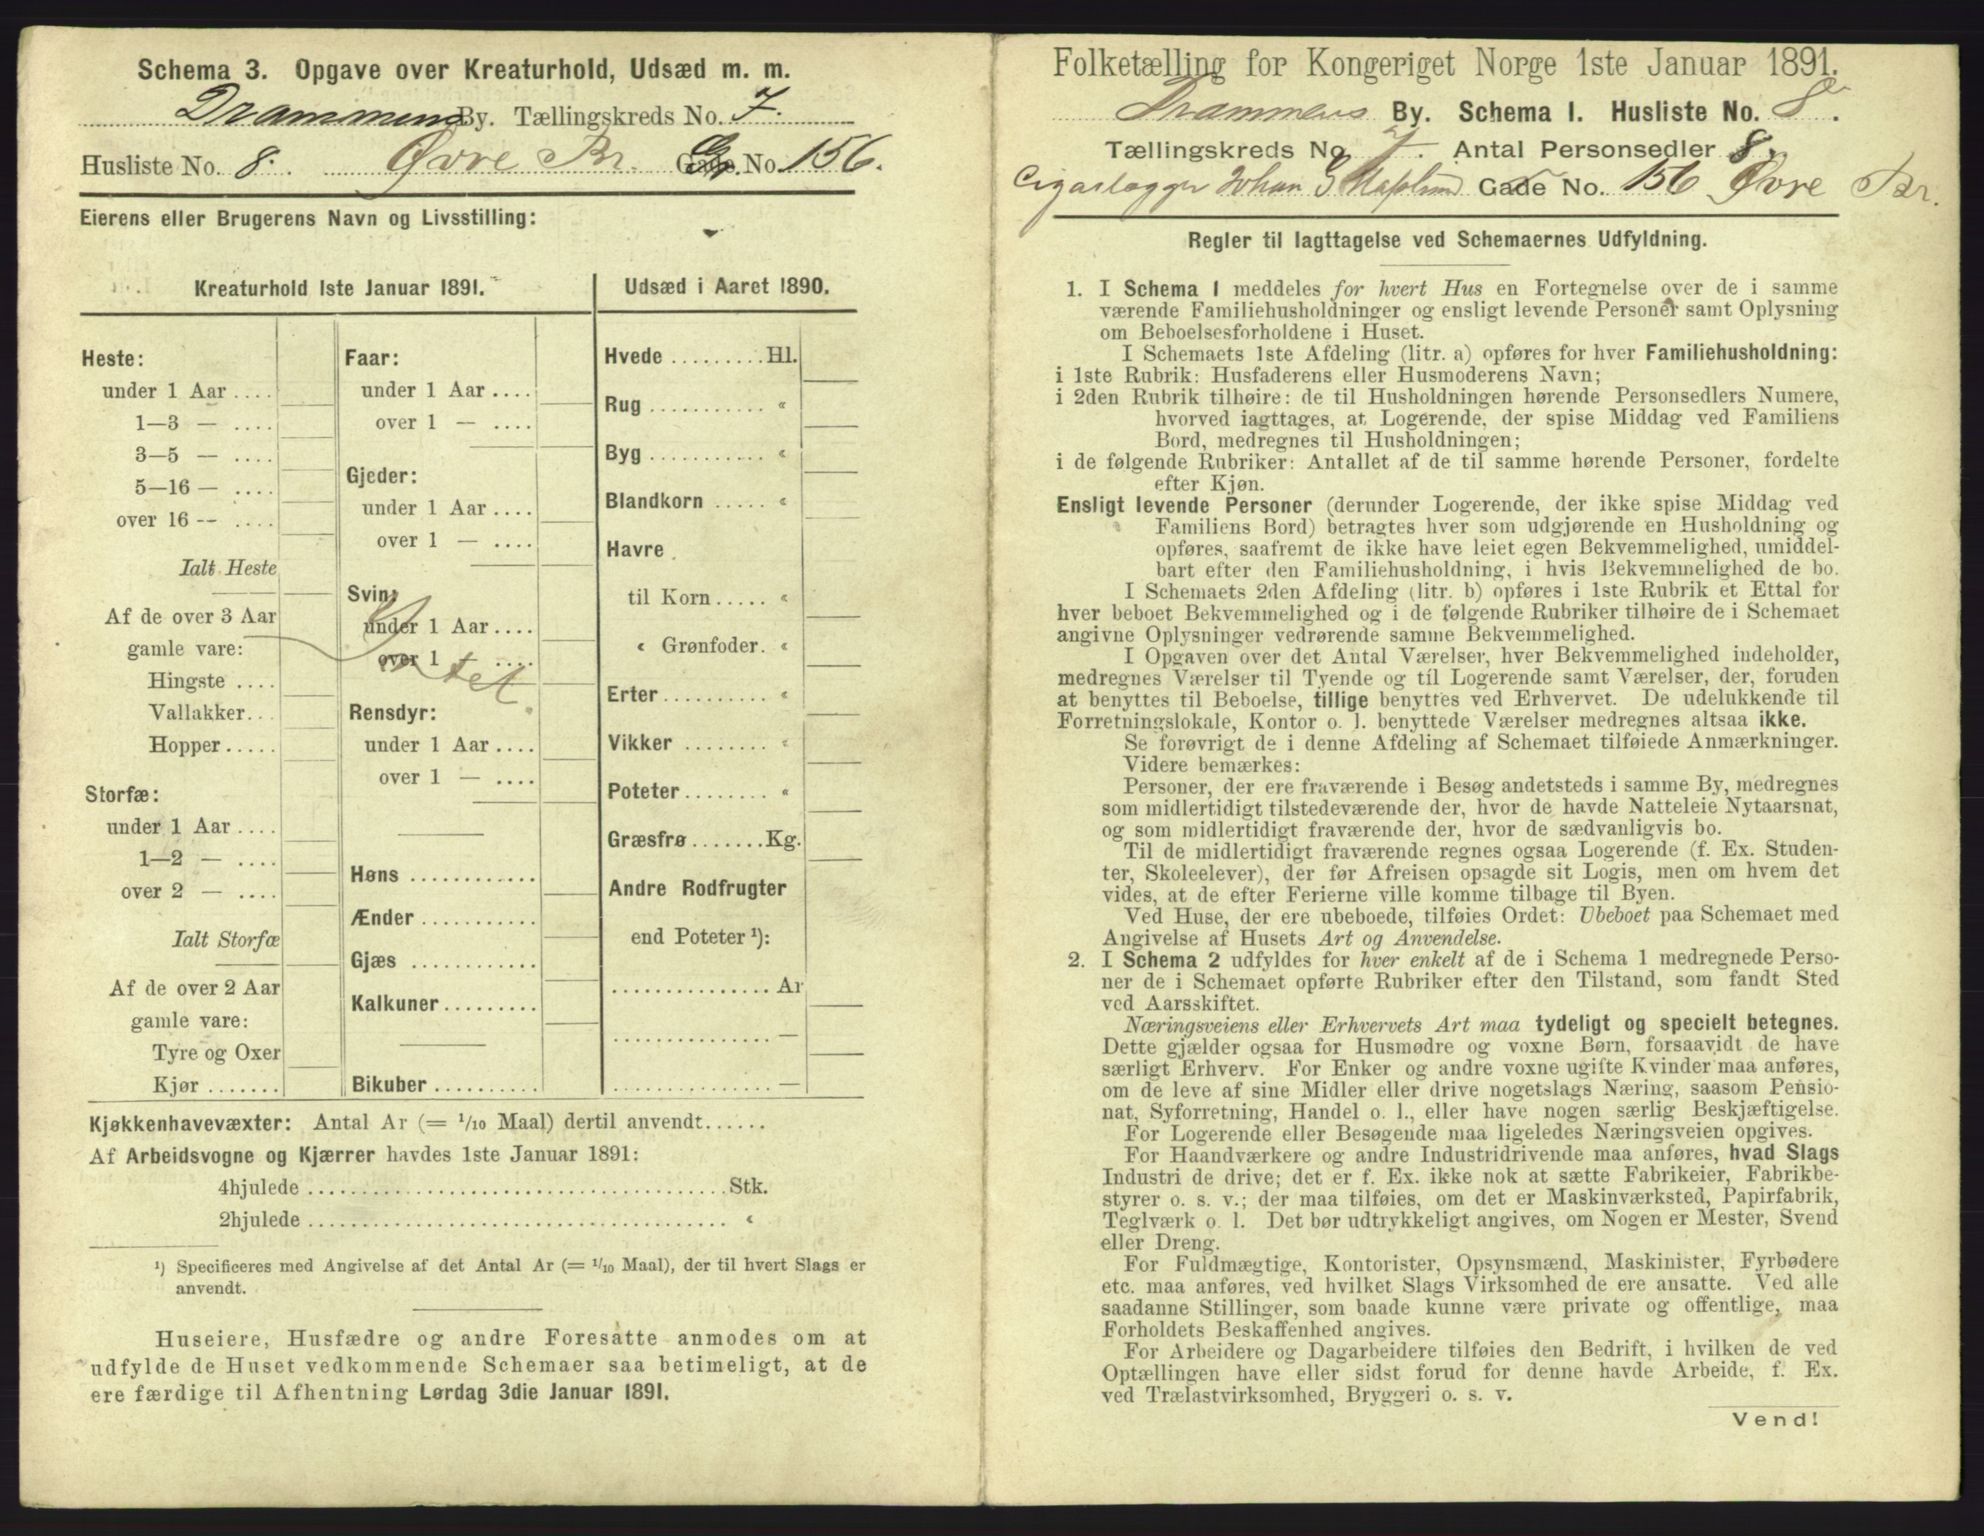 Schema 3. Opgave over Kreaturhold, Udsæd m. m.
Drammens By. Tællingskreds No. 7.
Husliste No. 8. Øvre Br. Gade No. 156.
Eierens eller Brugerens Navn og Livsstilling:
Kreaturhold 1ste Januar 1891.
Heste:
under 1 Aar ....
1—3 — ....
3—5 — ....
5—16 — ....
over 16 -- ....
Ialt Heste
Af de over 3 Aar
gamle vare:
Hingste ....
Vallakker...
Hopper.....
Storfæ:
under 1 Aar ....
1—2 — ....
over 2 — ....
Ialt Storfæ
Af de over 2 Aar
gamle vare:
Tyre og Oxer
Kjør .......
Faar:
under 1 Aar ....
over 1 — ....
Gjeder:
under 1 Aar ....
over 1 — ....
Svin:
under 1 Aar ....
over 1 — ....
Intet.
Rensdyr:
under 1 Aar ....
over 1 — ....
Høns ............
Ænder ...........
Gjæs ............
Kalkuner .........
Bikuber ..........
Udsæd i Aaret 1890.
Hvede .........Hl.
Rug ........... «
Byg ........... «
Blandkorn ..... «
Havre
til Korn ..... «
« Grønfoder. «
Erter .......... «
Vikker ........ «
Poteter ........ «
Græsfrø .......Kg.
Andre Rodfrugter
end Poteter ¹):
............... Ar
............... —
............... —
Kjøkkenhavevæxter: Antal Ar (= 1/10 Maal) dertil anvendt......
Af Arbeidsvogne og Kjærrer havdes 1ste Januar 1891:
4hjulede ........................................Stk.
2hjulede ........................................ «
¹) Specificeres med Angivelse af det Antal Ar (= 1/10 Maal), der til hvert Slags er
anvendt.
Huseiere, Husfædre og andre Foresatte anmodes om at
udfylde de Huset vedkommende Schemaer saa betimeligt, at de
ere færdige til Afhentning Lørdag 3die Januar 1891.
Folketælling for Kongeriget Norge 1ste Januar 1891.
Drammens By. Schema I. Husliste No. 8.
Tællingskreds No. 7. Antal Personsedler 8.
Johan Gade No. 156 Øvre Br.
Regler til Iagttagelse ved Schemaernes Udfyldning.
1. I Schema 1 meddeles for hvert Hus en Fortegnelse over de i samme
værende Familiehusholdninger og ensligt levende Personer samt Oplysning
om Beboelsesforholdene i Huset.
I Schemaets 1ste Afdeling (litr. a) opføres for hver Familiehusholdning:
i 1ste Rubrik: Husfaderens eller Husmoderens Navn;
i 2den Rubrik tilhøire: de til Husholdningen hørende Personsedlers Numere,
hvorved iagttages, at Logerende, der spise Middag ved Familiens
Bord, medregnes til Husholdningen;
i de følgende Rubriker: Antallet af de til samme hørende Personer, fordelte
efter Kjøn.
Ensligt levende Personer (derunder Logerende, der ikke spise Middag ved
Familiens Bord) betragtes hver som udgjørende en Husholdning og
opføres, saafremt de ikke have leiet egen Bekvemmelighed, umiddel-
bart efter den Familiehusholdning, i hvis Bekvemmelighed de bo.
I Schemaets 2den Afdeling (litr. b) opføres i 1ste Rubrik et Ettal for
hver beboet Bekvemmelighed og i de følgende Rubriker tilhøire de i Schemaet
angivne Oplysninger vedrørende samme Bekvemmelighed.
I Opgaven over det Antal Værelser, hver Bekvemmelighed indeholder,
medregnes Værelser til Tyende og til Logerende samt Værelser, der, foruden
at benyttes til Beboelse, tillige benyttes ved Erhvervet. De udelukkende til
Forretningslokale, Kontor o. l. benyttede Værelser medregnes altsaa ikke.
Se forøvrigt de i denne Afdeling af Schemaet tilføiede Anmærkninger.
Videre bemærkes:
Personer, der ere fraværende i Besøg andetsteds i samme By, medregnes
som midlertidigt tilstedeværende der, hvor de havde Natteleie Nytaarsnat,
og som midlertidigt fraværende der, hvor de sædvanligvis bo.
Til de midlertidigt fraværende regnes ogsaa Logerende (f. Ex. Studen-
ter, Skoleelever), der før Afreisen opsagde sit Logis, men om hvem det
vides, at de efter Ferierne ville komme tilbage til Byen.
Ved Huse, der ere ubeboede, tilføies Ordet: Ubeboet paa Schemaet med
Angivelse af Husets Art og Anvendelse.
2. I Schema 2 udfyldes for hver enkelt af de i Schema 1 medregnede Perso-
ner de i Schemaet opførte Rubriker efter den Tilstand, som fandt Sted
ved Aarsskiftet.
Næringsveiens eller Erhvervets Art maa tydeligt og specielt betegnes.
Dette gjælder ogsaa for Husmødre og voxne Børn, forsaavidt de have
særligt Erhverv. For Enker og andre voxne ugifte Kvinder maa anføres,
om de leve af sine Midler eller drive nogetslags Næring, saasom Pensio-
nat, Syforretning, Handel o. l., eller have nogen særlig Beskjæftigelse.
For Logerende eller Besøgende maa ligeledes Næringsveien opgives.
For Haandværkere og andre Industridrivende maa anføres, hvad Slags
Industri de drive; det er f. Ex. ikke nok at sætte Fabrikeier, Fabrikbe-
styrer o. s. v.; der maa tilføies, om det er Maskinværksted, Papirfabrik,
Teglværk o. l. Det bør udtrykkeligt angives, om Nogen er Mester, Svend
eller Dreng.
For Fuldmægtige, Kontorister, Opsynsmænd, Maskinister, Fyrbødere
etc. maa anføres, ved hvilket Slags Virksomhed de ere ansatte. Ved alle
saadanne Stillinger, som baade kunne være private og offentlige, maa
Forholdets Beskaffenhed angives.
For Arbeidere og Dagarbeidere tilføies den Bedrift, i hvilken de ved
Optællingen have eller sidst forud for denne havde Arbeide, f. Ex.
ved Trælastvirksomhed, Bryggeri o. s. v.
Vend!